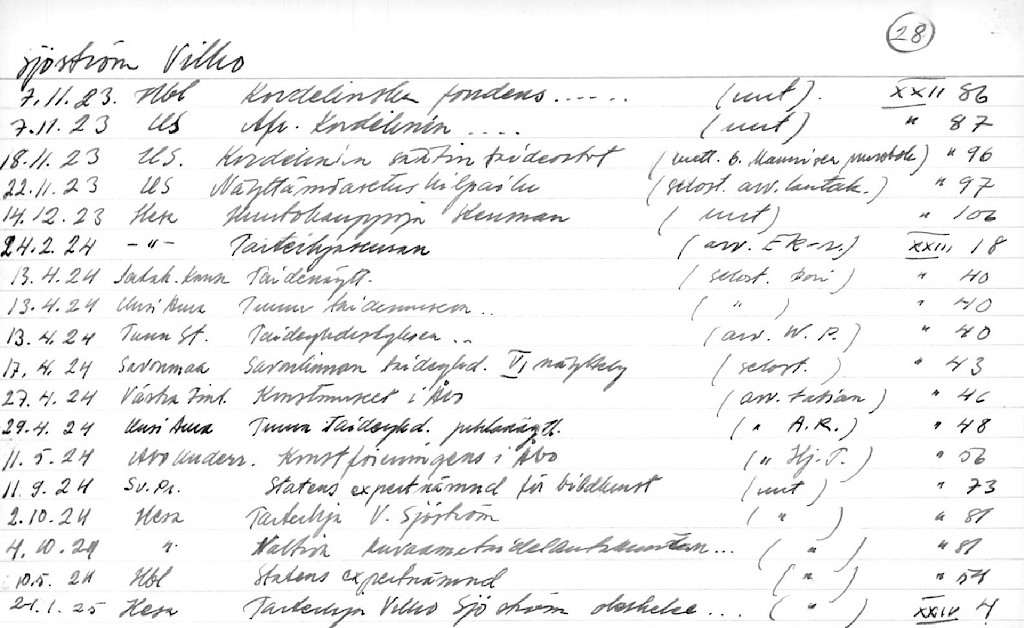 28
Sjöström Vilho
7.11.23. Hbl Kordelinska fondens...... (uut). XXII 86
7.11.23 US Afr. Kordelinin .... (uut) " 87
18.11.23 US. Kordelinin säätiön taideostot (uutt. b. ) " 96
22.11.23 US Näyttämöasetuskilpailu (selost. arv. lautak.) " 97
14.12.23 Hesa Huutokauppoja Keuman (uut) " 106
24.2.24 -"- Taiteilijaseuran (arv. ER-r.) XXIII 18
13.4.24 Satak. Kansa Taidenäytt. (selost. ) " 40
13.4.24 Uusi Aura Turun taidemuseon .. ( " ) " 40
13.4.24 Turun St. Taideyhdistyksen .. (arv. W.P.) " 40
17.4.24 Savonmaa Savonlinnan taideyhd. VI näyttely (selost. ) " 43
27.4.24 Västra Finl. Konstmuseet i Åbo (arv. ) " 46
29.4.24 Uusi Aura Turun Taideyhd. juhlanäytt. ( " A.R.) " 48
11.5.24 Åbo Underr. Konstföreningens i Åbo ( " Hj.T.) " 56
11.9.24 Sv.Pr. Statens expertnämnd för bildkonst (uut) " 73
2.10.24 Hesa Taiteilija V. Sjöström ( " ) " 81
4.10.24 " Valtion kuvaamataidelautakuntaan... ( " ) " 81
10.5.24 Hbl Statens expertnämnd ( " ) " 54
21.1.25 Hesa Taiteilija Vilho Sjöström oleskelee... ( " ) XXIV 4